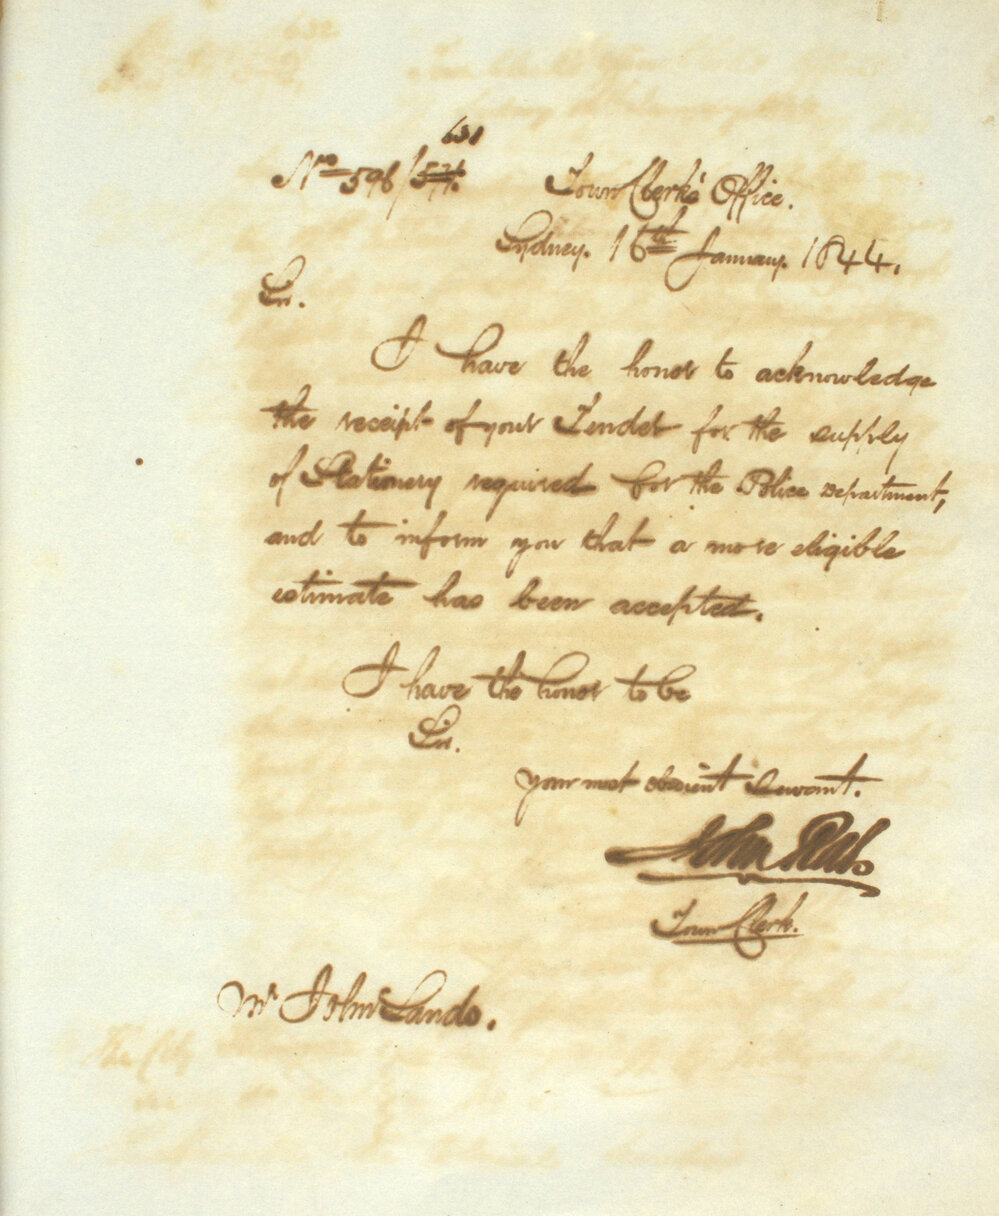 631
No 596/574.
Town Clerk's Office.
Sydney. 16th January. 1844.
Sir.
I have the honor to acknowledge
the receipt of your Tender for the supply
of Stationery required for the Police Department,
and to inform you that a more eligible
estimate has been accepted.
I have the honor to be
Sir.
Your most obedient Servant.
John
Town Clerk.
Mr John Sands.